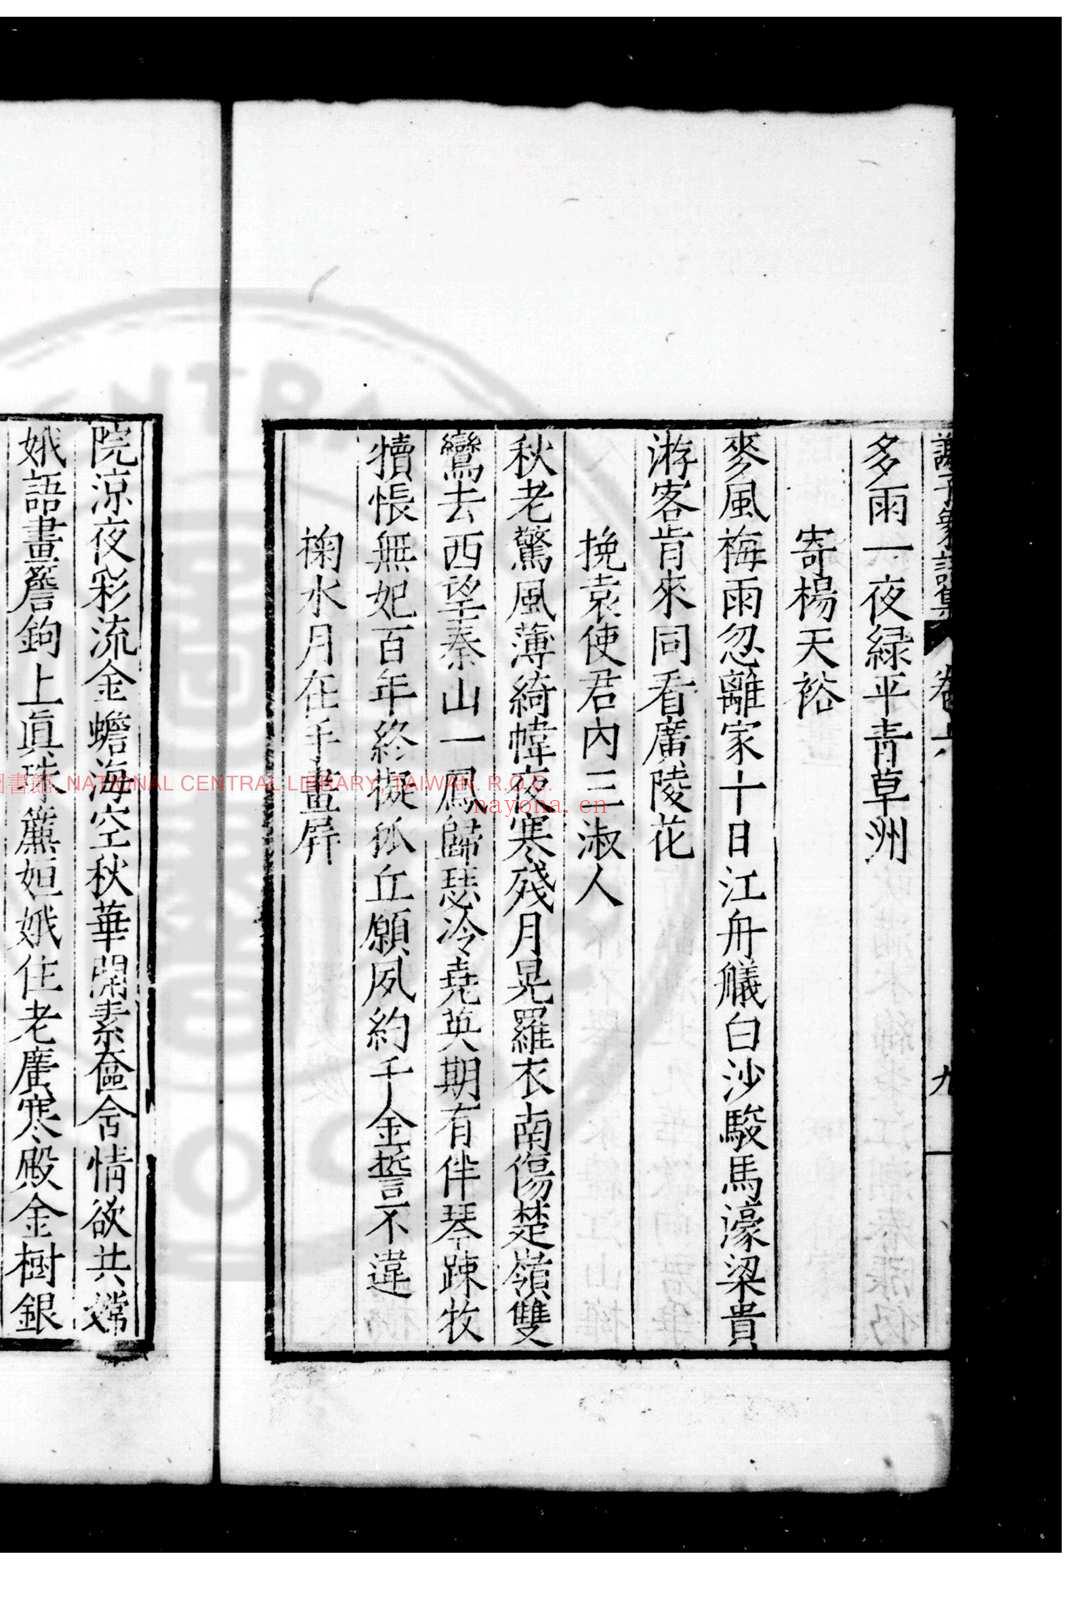 多雨一夜緑平青草洲
寄楊天裕
麥風梅雨忽離家十日江舟艤白沙駿馬濠梁貴
游客肯來同看廣陵花
挽袁使君內三淑人
秋老驚風薄綺幃夜寒殘月晃羅衣南傷楚嶺雙
鸞去西望秦山一鳳歸瑟冷堯英期有伴琴踈牧
犢悵無妃百年終擬孤丘願夙約千金誓不違
掬水月在手畫屏
院涼夜彩流金蟾海空秋華開素奩含情欲共嫦
娥語畫簷鉤上眞珠簾姮娥住老廣寒殿金樹銀
卷六
九
圖書館 NATIONAL CENTRAL LIBRARY, TAIWAN R.O.C.
nayona.cn